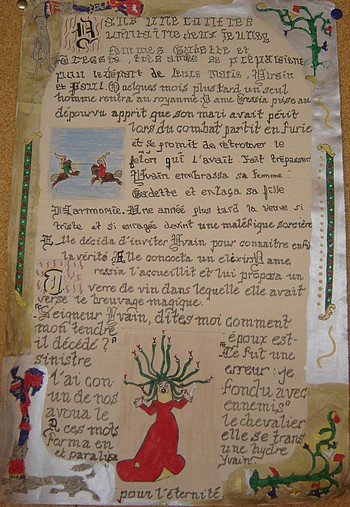 Dans une contrée
lointaine deux jeunes
femmes Gudette et
Cressia, très amies se réunissaient
pour le départ de leurs maris, Yvain
et Paul. Quelques mois plus tard un seul
homme rentra au royaume Dame Cressia prise au
dépourvu apprit que son mari avait périt
lors du combat partit en furie
et se promit de retrouver le
félon qui l'avait fait trépasser
Yvain embrassa sa femme
Gudette et enlaça sa fille
Harmonie. Une année plus tard la veuve si
triste et si enragée devint une maléfique sorcière
Elle décida d'inviter Yvain pour connaître enfin
la vérité Elle concocta un élixir Dame
Cressia l'accueillit et lui proposa un
verre de vin dans lequelle elle avait
versé le breuvage magique.
"Seigneur Yvain, dites moi comment
mon tendre époux est-
il décédé?" "Ce fut une
sinistre erreur: je
l'ai confondu avec
un de nos ennemis"
avoua le chevalier
A ces mots elle se trans
forma en une hydre
et paralisa Yvain
pour l'éternité.